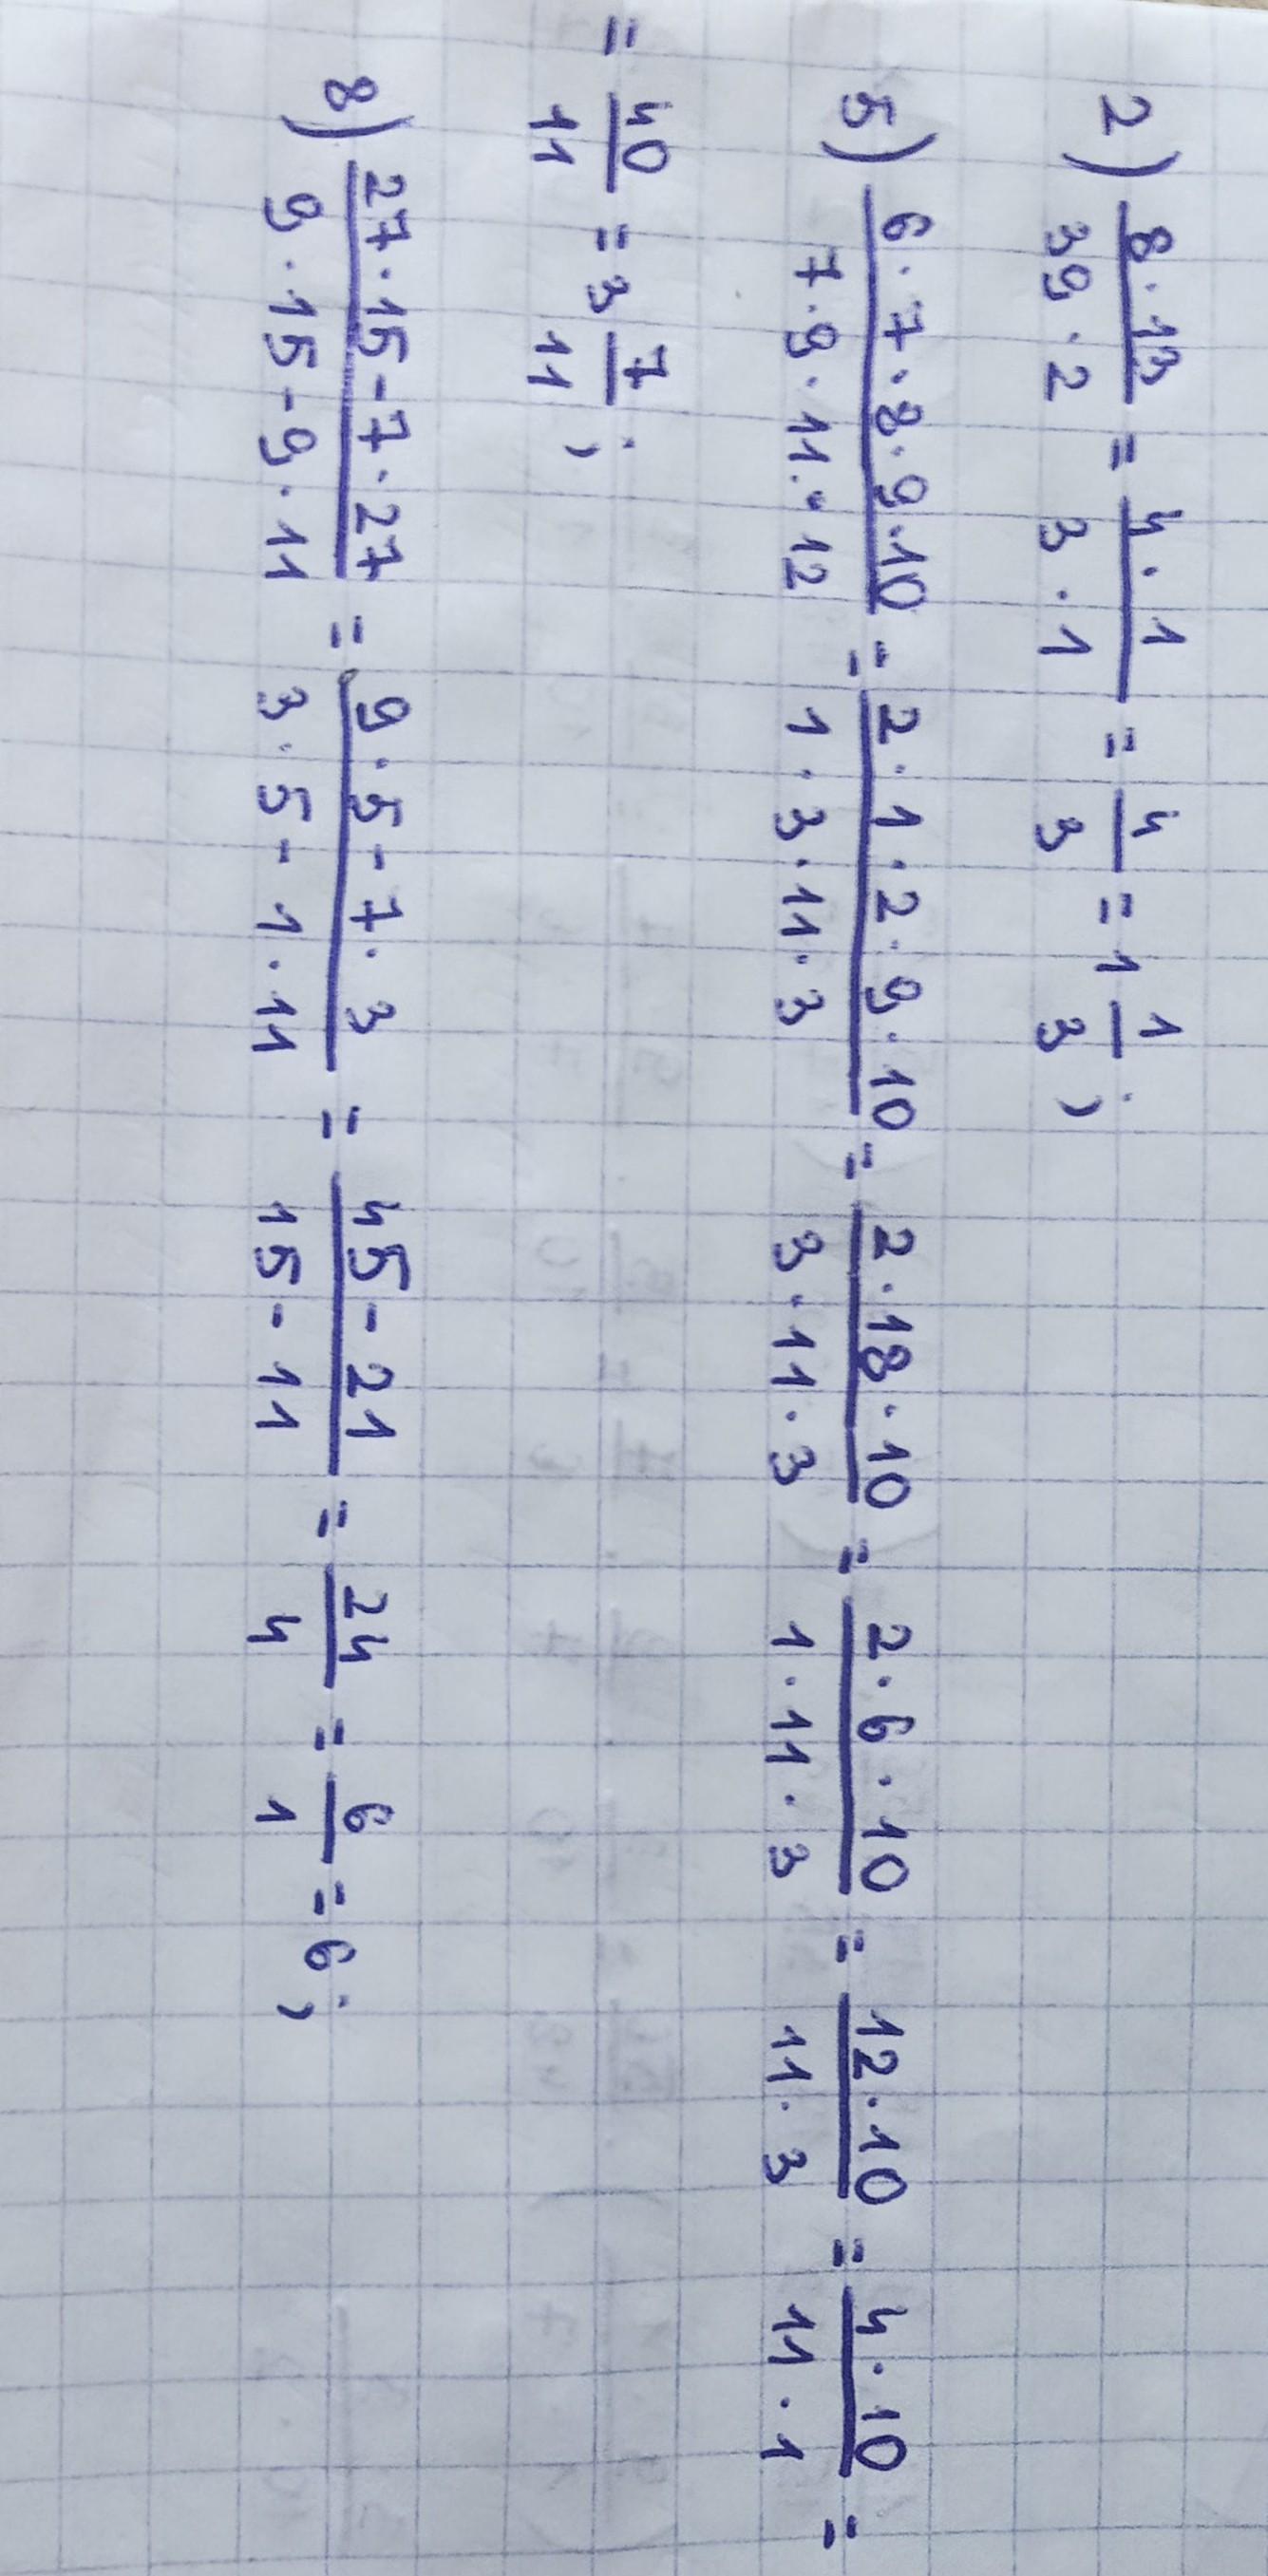 2) 8·13/39·2 = 4·1/3·1 = 4/3 = 1 1/3;
5) 6·7·8·9·10/7·9·11·12 = 2·1·2·9·10/1·3·11·3 = 2·18·10/3·11·3 = 2·6·10/1·11·3 = 12·10/11·3 = 4·10/11·1 =
= 40/11 = 3 7/11;
8) 27·15-7·27/9·15-9·11 = 9·5-7·3/3·5-1·11 = 45-21/15-11 = 24/4 = 6/1 = 6;